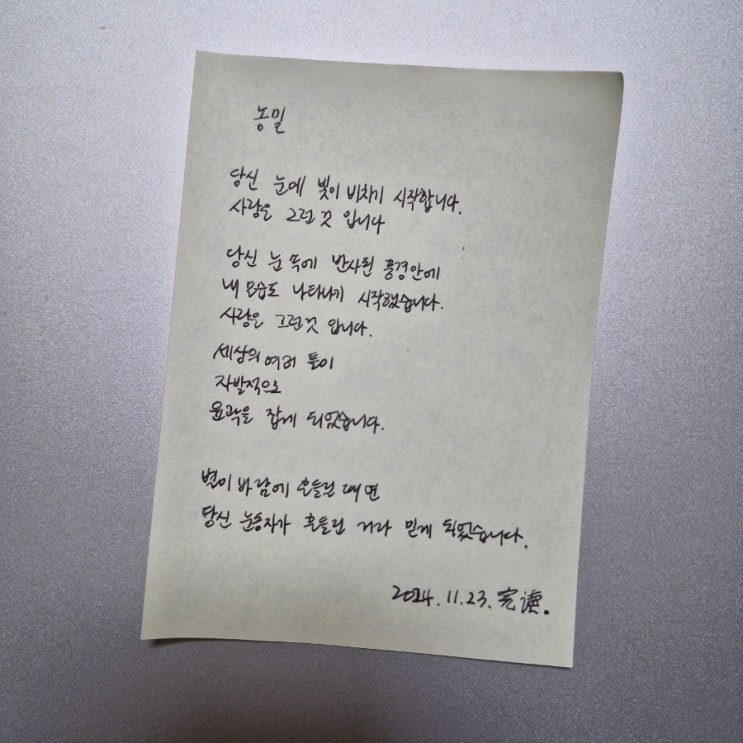 농밀
당신 눈에 빛이 비치기 시작합니다.
사랑은 그런 것 입니다
당신 눈 뚝에 반사된 풍경안에
내 모습도 나타나기 시작했습니다.
사랑은 그런것 입니다.
세상의 여러 틀이
자발적으로
윤곽을 잡게 되었습니다.
별이 바람에 흔들린 때면
당신 눈송자가 흔들린 거라 믿게 되었습니다.
2024.11.23.完读.